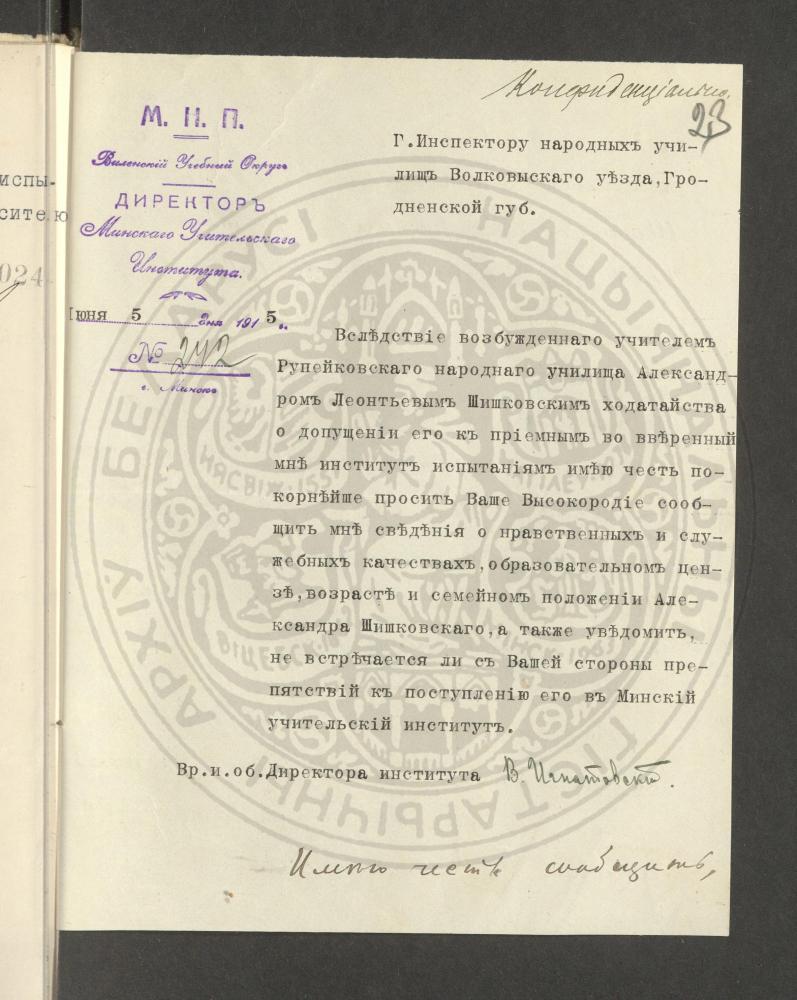 Конфиденціально.
23
М. Н. П.
Виленскій Учебный Округъ
ДИРЕКТОРЪ
Минскаго Учительскаго
Института.
Іюня 5 дня 1915 г.
№ 242
г. Минскъ
Г.Инспектору народныхъ учи-
лищъ Волковыскаго уѣзда,Гро-
дненской губ.
Вслѣдствіе возбужденнаго учителемъ
Рупейковскаго народнаго училища Александ-
ромъ Леонтьевымъ Шишковскимъ ходатайства
о допущеніи его къ пріемнымъ во ввѣренный
мнѣ институтъ испытаніямъ имѣю честь по-
корнѣйше просить Ваше Высокородіе сооб-
щить мнѣ свѣдѣнія о нравственныхъ и слу-
жебныхъ качествахъ,образовательномъ цен-
зѣ,возрастѣ и семейномъ положеніи Але-
ксандра Шишковскаго,а также увѣдомить,
не встрѣчается ли съ Вашей стороны пре-
пятствій къ поступленію его въ Минскій
учительскій институтъ.
Вр.и.об.Директора института В. Игнатовскій.
Имѣю честь сообщить,
испы-
сите ю
024
НАЦЫЯНАЛЬНЫ ГІСТАРЫЧНЫ АРХІЎ БЕЛАРУСІ